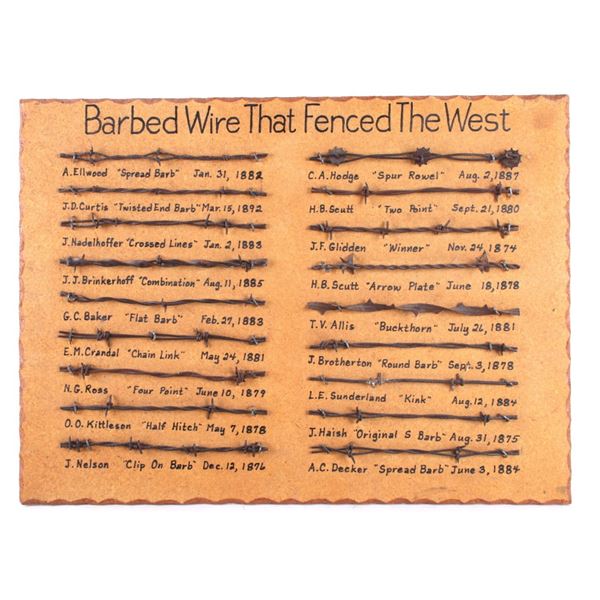 Barbed Wire That Fenced The West
A.Ellwood "Spread Barb" Jan. 31, 1882
J.D.Curtis "Twisted End Barb" Mar. 15, 1892
J.Nadelhoffer "Crossed Lines" Jan. 2, 1883
J.J.Brinkerhoff "Combination" Aug. 11, 1885
G.C.Baker "Flat Barb" Feb. 27, 1883
E.M.Crandal "Chain Link" May 24, 1881
N.G.Ross "Four Point" June 10, 1879
O.O.Kittleson "Half Hitch" May 7, 1878
J.Nelson "Clip On Barb" Dec. 12, 1876
C.A.Hodge "Spur Rowel" Aug. 2, 1887
H.B.Scutt "Two Point" Sept. 21, 1880
J.F.Glidden "Winner" Nov. 24, 1874
H.B.Scutt "Arrow Plate" June 18, 1878
T.V.Allis "Buckthorn" July 26, 1881
J.Brotherton "Round Barb" Sept. 3, 1878
L.E.Sunderland "Kink" Aug. 12, 1884
J.Haish "Original S Barb" Aug. 31, 1875
A.C.Decker "Spread Barb" June 3, 1884